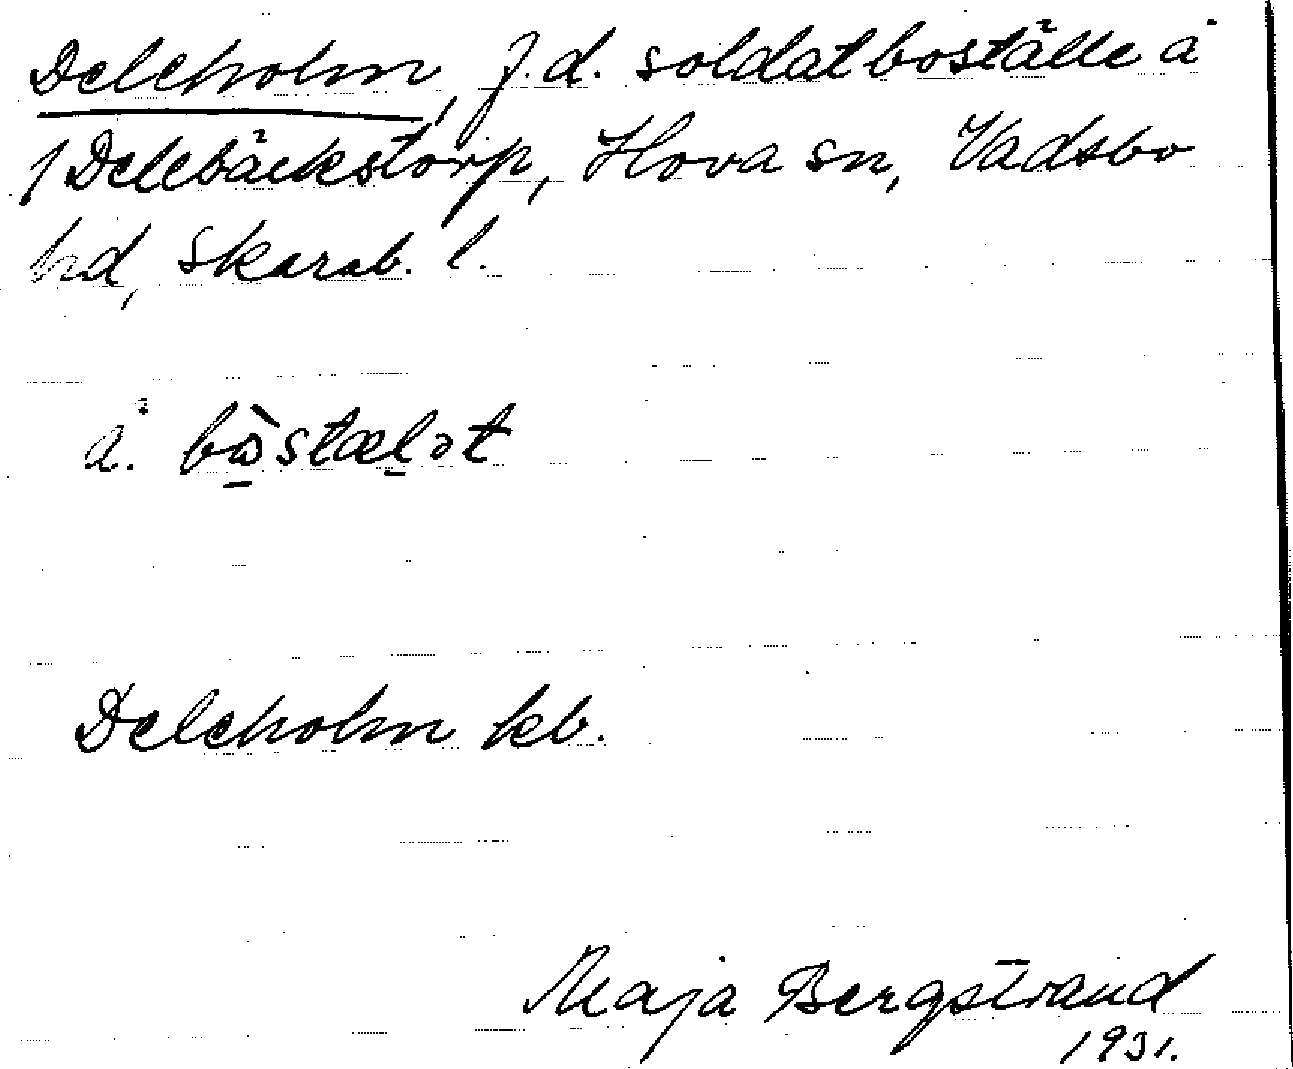 Deleholm, f.d. soldatboställe å
1 Delebäckstorp, Hova sn, Vadsbo
hd, Skarab. l.
å. bɷ̀stælət
Deleholm kb.
Maja Bergstrand
1931.